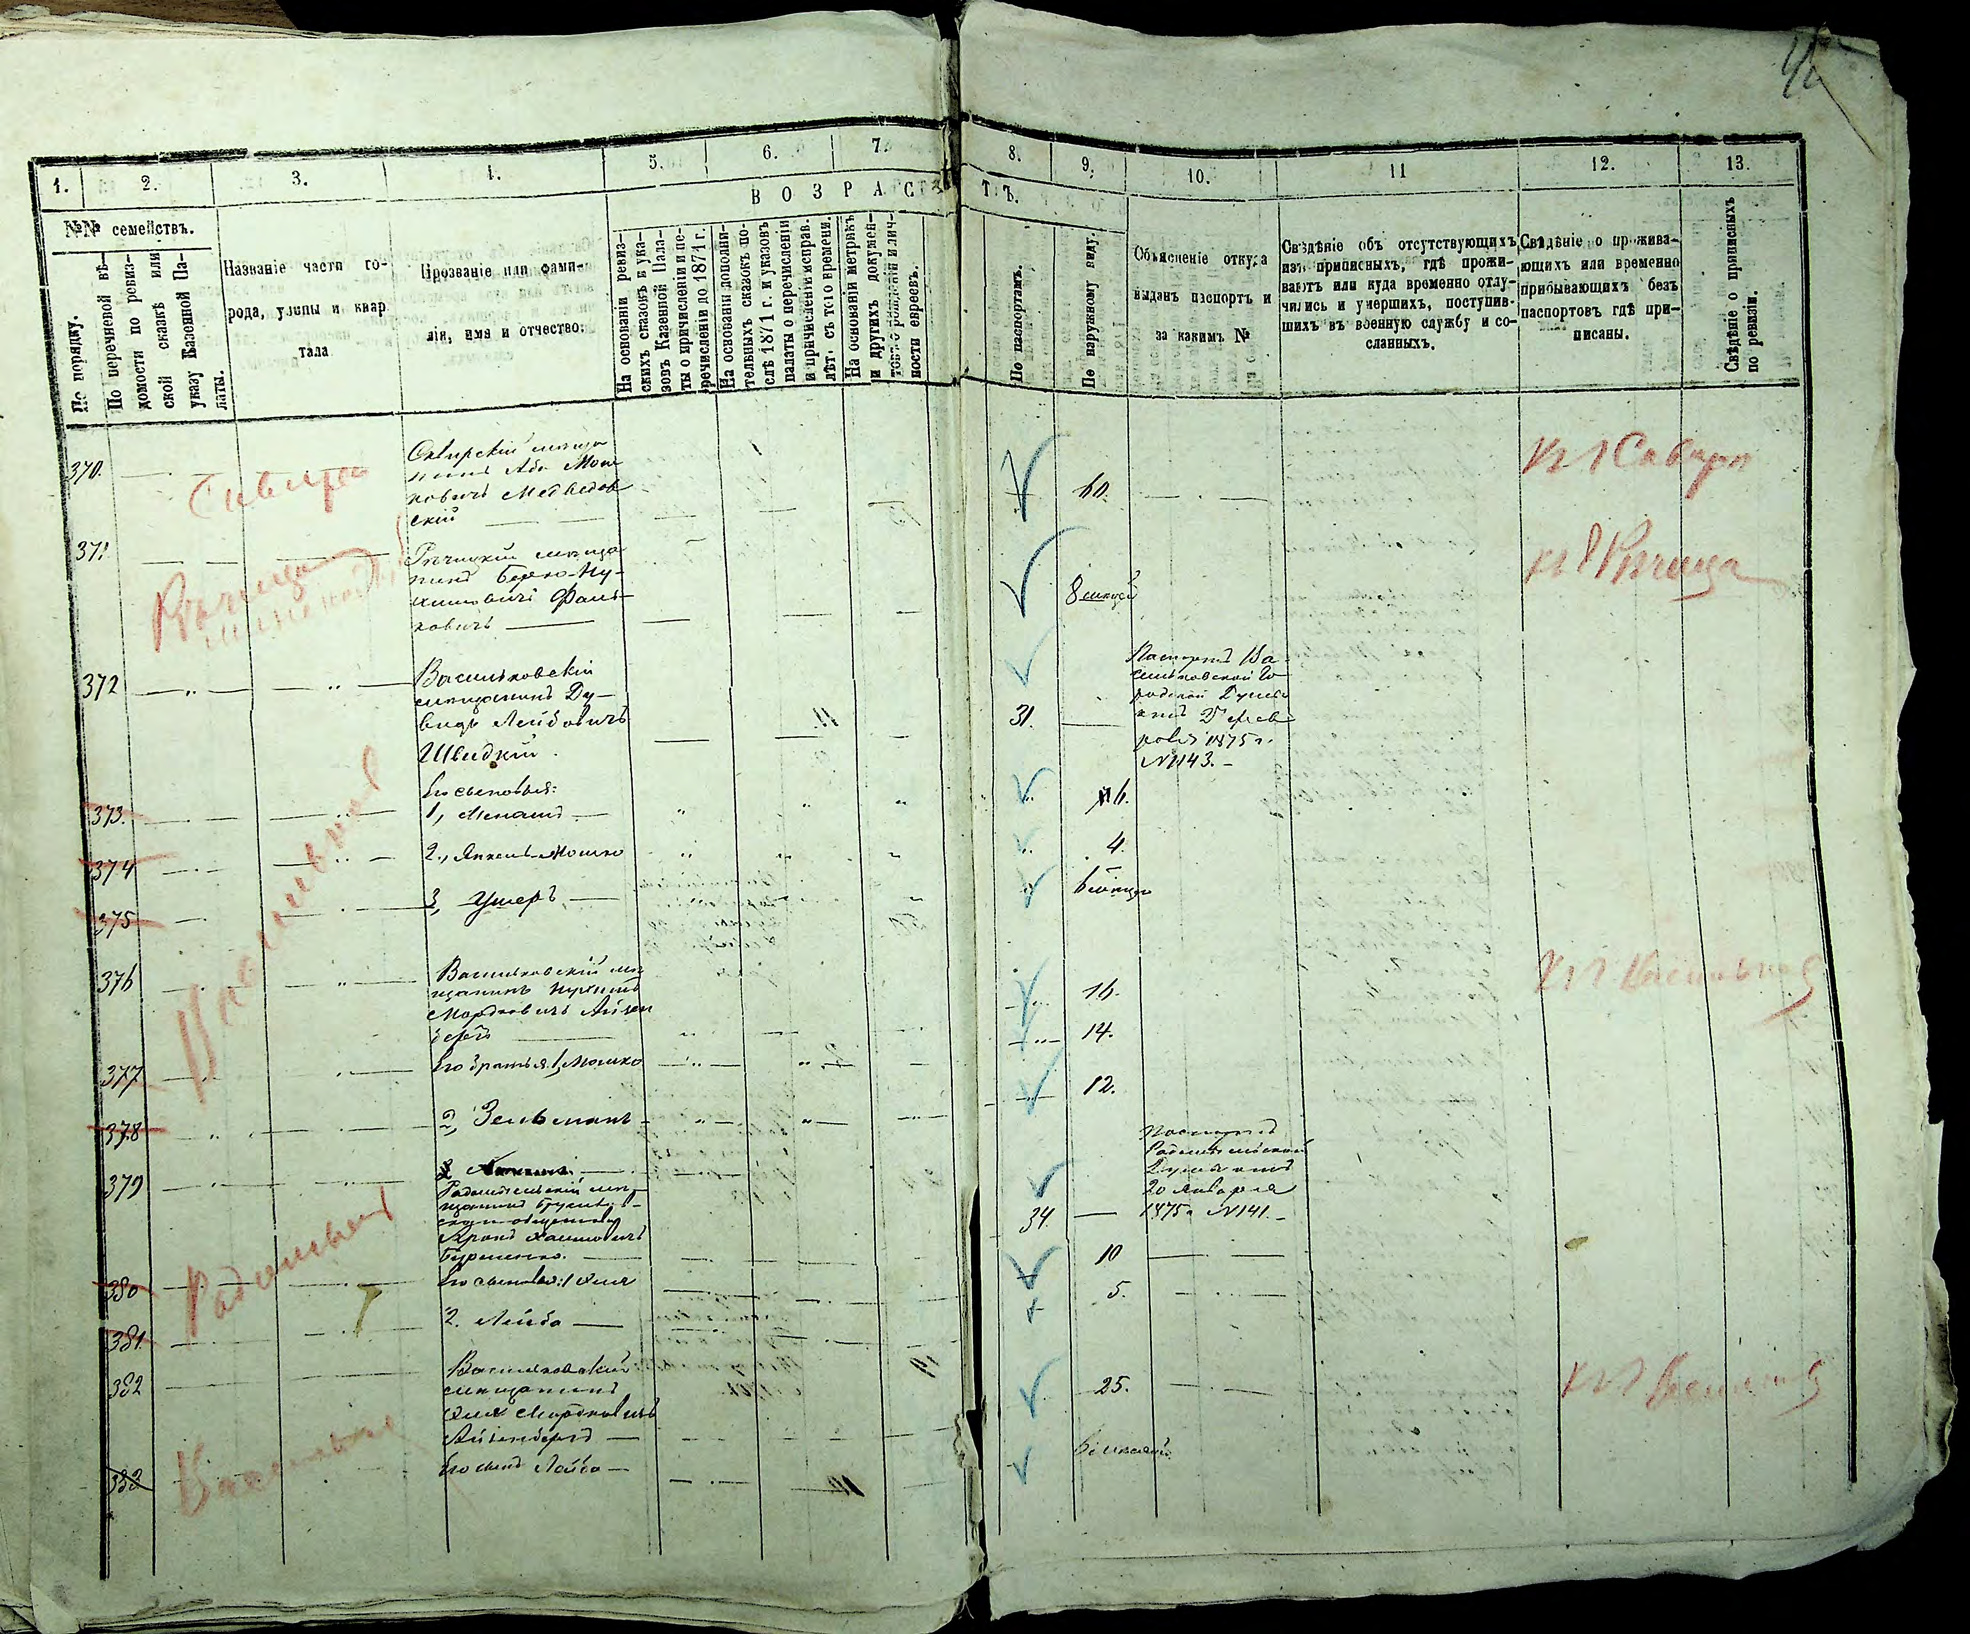 1.
2.
3.
4.
5.
6.
7.
8.
9.
10.
11
12.
13.
ВОЗРАСТЪ.
№№ семействъ.
По порядку.
По перечневой вѣ-
домости по ревиз-
ской сказкѣ или
указу Казенной Па-
латы.
Названіе части го-
рода, улицы и квар
тала
Прозваніе или фами-
лія, имя и отчество.
На основаніи ревиз-
скихъ сказокъ и ука-
зовъ Казенной Пала-
ты о причисленіи и пе-
речисленіи до 1871 г.
На основаніи дополни-
тельныхъ сказокъ по-
слѣ 1871 г. и указовъ
палаты о перечисленіи
и причисленіи исправ.
лѣт. съ того времени.
На основаніи метрикъ
и другихъ докумен-
товъ о рожденіи и лич-
ности евреевъ.
По паспортамъ.
По наружному виду
Объясненіе откуда
выданъ паспортъ и
за какимъ №
Свѣдѣніе объ отсутствующихъ
изъ приписныхъ, гдѣ прожи-
ваютъ или куда временно отлу-
чились и умершихъ, поступив-
шихъ въ военную службу и со-
сланныхъ.
Свѣдѣніе о прожива-
ющихъ или временно
прибывающихъ безъ
паспортовъ гдѣ при-
писаны.
Свѣдѣніе о приписныхъ
по ревизіи.
370.
Сквирскій мѣща
нинъ Аба Мош
ковичъ Медведов
скій
60.
371
Рѣчицкій мѣща
нинъ Берко-Ну-
химовичъ Фаль-
ковичъ
8 мѣсяц
Рѣчица
372
Васильковскій
мѣщанинъ Ду-
видъ Лейбовичъ
Швидкій.
31.
Паспортъ Ва-
сильковской Го
родской Думы
отъ 25 Фев
раля 1875 г.
№1143.
Его сыновья:
373.
1, Менашъ
6.
374
2., Янкель-Мошко
4.
375
3, Ушеръ
6 мѣсяц
Васильков
376
Васильковскій мѣ
щанинъ Нухимъ
Мордковичъ Айзен
бергъ
16.
377
Его братья 1, Мошко
14.
378
2, Зельманъ
12.
379
Радомысльскій мѣ-
щанинъ
Аронъ Хаимовичъ
Бурменко.
34.
Паспортъ
Радомысльской
Думы отъ
20 Января
1875 г. №141.
380
Его сыновья: 1
10
381.
2. Лейба
5.
382
Васильковскій
мѣщанинъ
Мордковичъ
Айзенбергъ
25.
383
Его сынъ Лейба
6 мѣсяцев